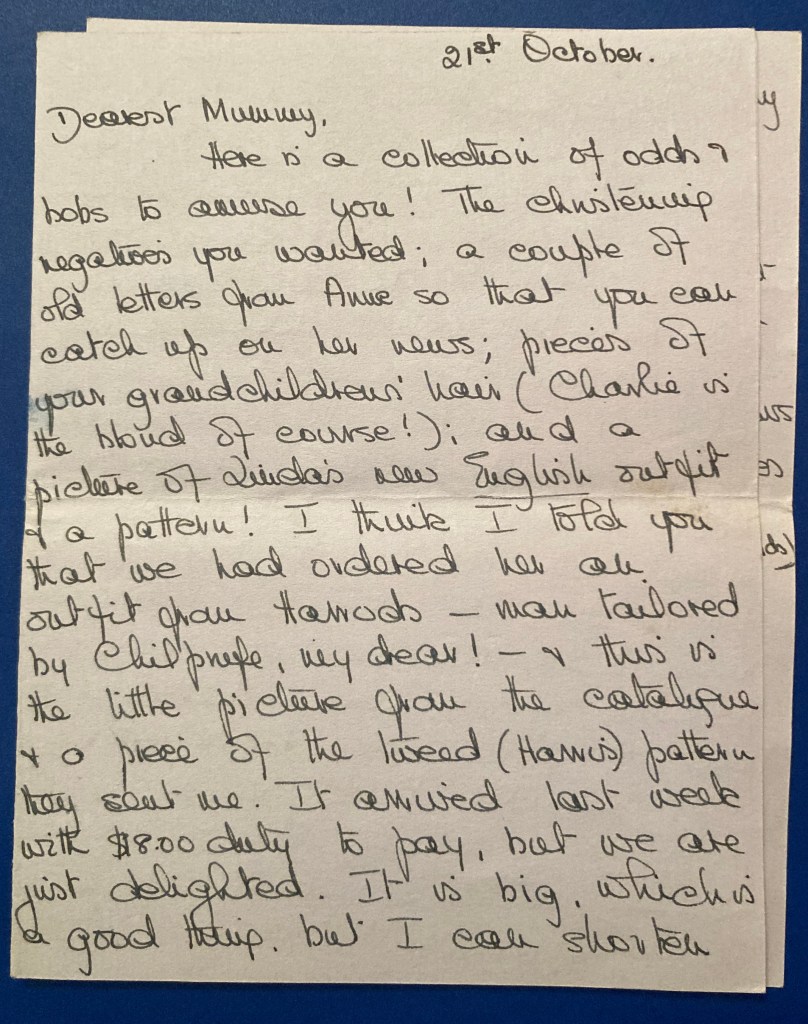 21st October.
Dearest Mummy,
Here is a collection of odds &
bobs to amuse you! The christening
negatives you wanted; a couple of
old letters from Anne so that you can
catch up on her news; pieces of
your grandchildrens' hair (Charlie is
the blond of course!); and a
picture of Linda's new English outfit
& a pattern! I think I told you
that we had ordered her an
outfit from Harrods – man tailored
by Chilprufe, my dear! – & this is
the little picture from the catalogue
& a piece of the tweed (Harris) pattern
they sent me. It arrived last week
with $8.00 duty to pay, but we are
just delighted. It is big, which is
a good thing, but I can shorten